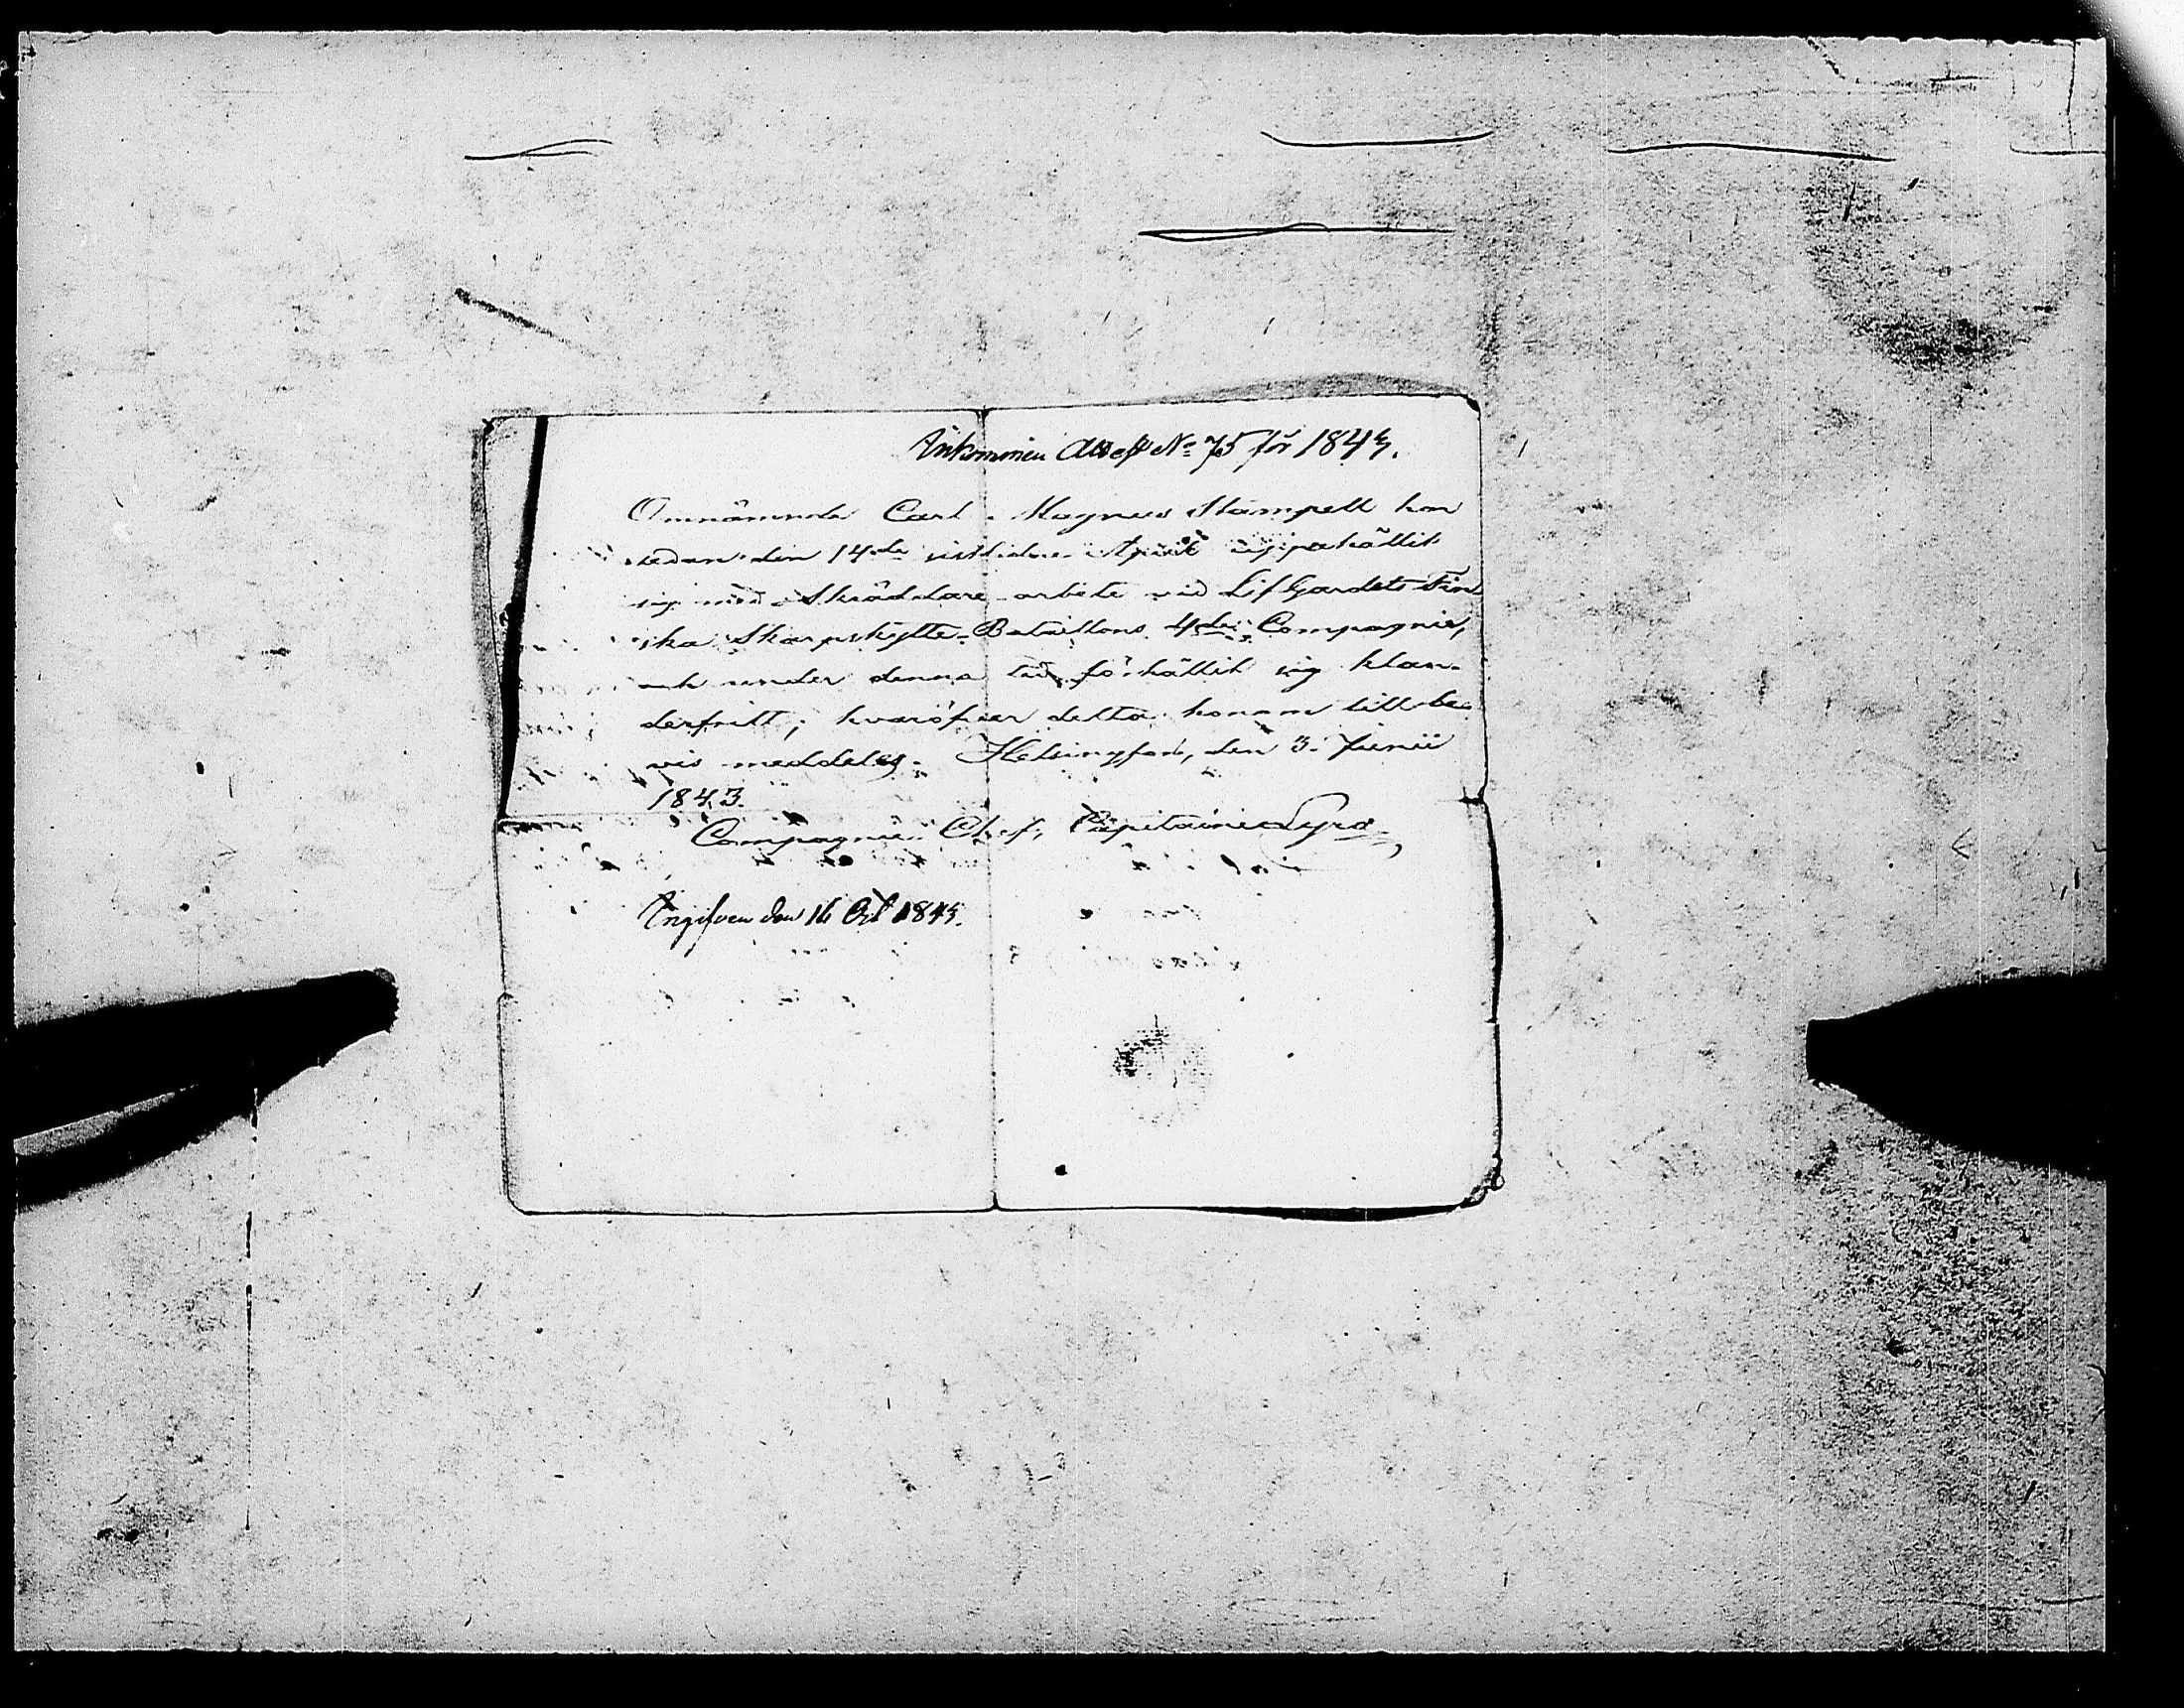 Inkommen Attest No 75 för 1843.
Omnämnde Carl Magnus Stampell har
sedan den 14de sistlidne April uppehållit
sig med Skräddare-arbete vid LifGardets Fin
ska Skarpskytte-Bataillons 4de Compagnie,
och under denna tid förhållit sig klan-
derfritt; hvaröfver detta honom till be-
vis meddelas. Helsingfors, den 3 Junii
1843.
Compagnie Chef, Capitaine
Ingifven den 16 Oct 1843.